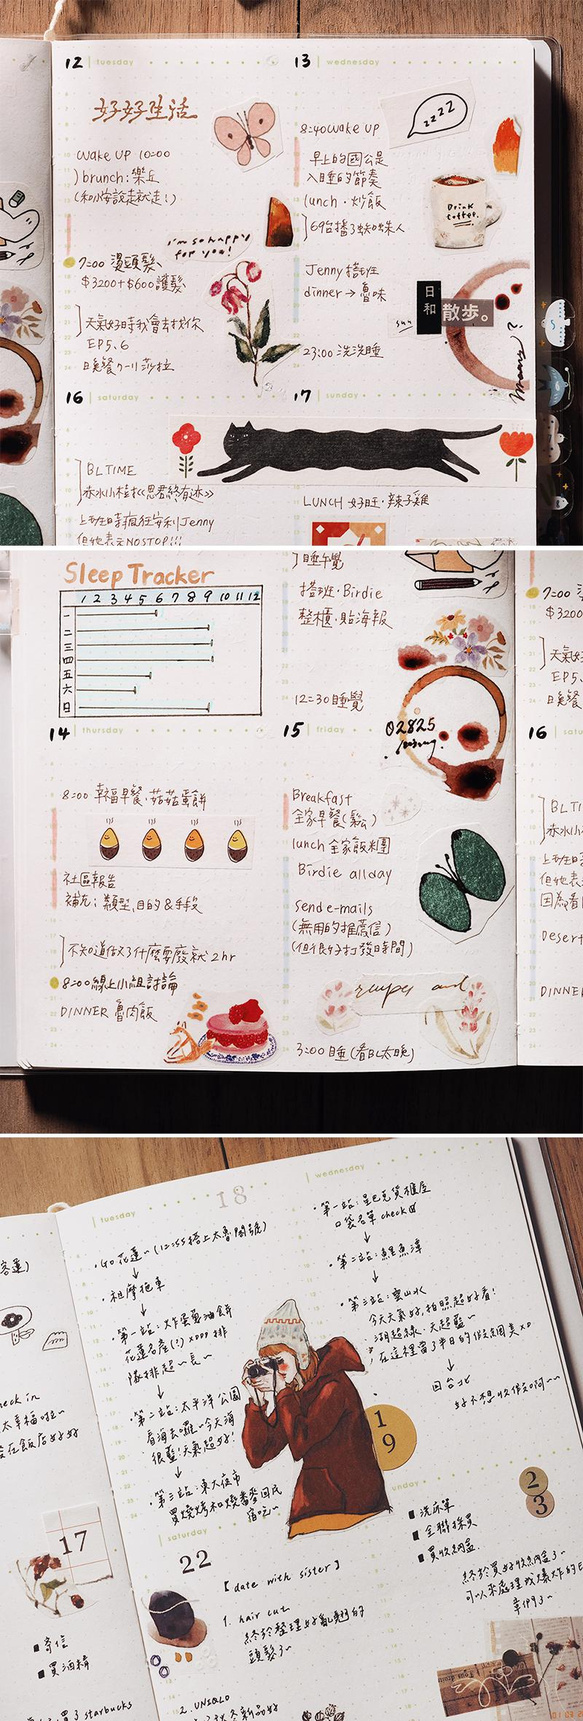 12 tuesday
好好生活
wake UP 10:00
brunch: 樂丘
(和小安說走就走!)
i'm so happy
for you!
7:00 燙頭髮
$3200+$600護髮
天氣好時我會去找你
EP5、6
晚餐 ㄅㄧ 莎拉
13 wednesday
8:40 wake UP
zzzz
早上的國公是
入睡的節奏
lunch・炒飯
69台播了蜘蛛人
Drink
Coffee.
Jenny 搭班
dinner → 魯味
日和
散歩。
sun
23:00 洗洗睡
16 saturday
BL TIME
赤水小樁找《思君終有迹》
上班時瘋狂安利Jenny
但他表示NO STOP!!!
17 sunday
LUNCH 好旺・辣子雞
Sleep Tracker
1 2 3 4 5 6 7 8 9 10 11 12
一
二
三
四
五
六
日
睡午覺
搭班・Birdie
整櫃・貼海報
12:30 睡覺
02825
7:00
$3200
天氣好
EP5、
晚餐
14 thursday
8:00 幸福早餐・菇菇蛋餅
社區報告
補充: 類型,目的&手段
不知道做了什麼耍廢就2hr
8:00線上小組討論
DINNER 魯肉飯
15 friday
Breakfast
全家早餐(鬆)
lunch 全家飯糰
Birdie all day
send e-mails
(無用的推薦信)
(但很好打發時間)
recipes and
3:00 睡 (看BL太晚)
16 satur
BL TI
赤水小
上班
但他表
因為看
Desert
DINNER
tuesday
18
・GO 花蓮~ (12:55搭上太魯閣號)
↓
・租摩拖車
↓
・第一站: 炸蛋蔥油餅
花蓮名產(?) xDDD 排
隊排超~長~
↓
・第二站: 太平洋公園
看海去囉~今天海
很藍!天氣超好!
↓
・第三站: 東大夜市
買燒烤和燒番麥回民
宿吃~
wednesday
・第一站: 星巴克貨櫃屋
口袋名單 check
↓
・第二站: 鯉魚潭
↓
・第三站: 雲山水
今天天氣好,拍照超好看!
湖超綠、天超藍~
在這裡當了半日的假網美xD
↓
回台北
好不想收假啊~~
19
check in
太幸福啦~
在飯店好好
17
寄信
買酒精
買了 starbucks
saturday
22
[ date with sister ]
1. hair cut
終於整理好亂翹的
頭髮了~
2. UNIQLO
unday
23
洗床單
全聯採買
買收納盒
終於買好收納盒了~
可以來處理我爆炸的